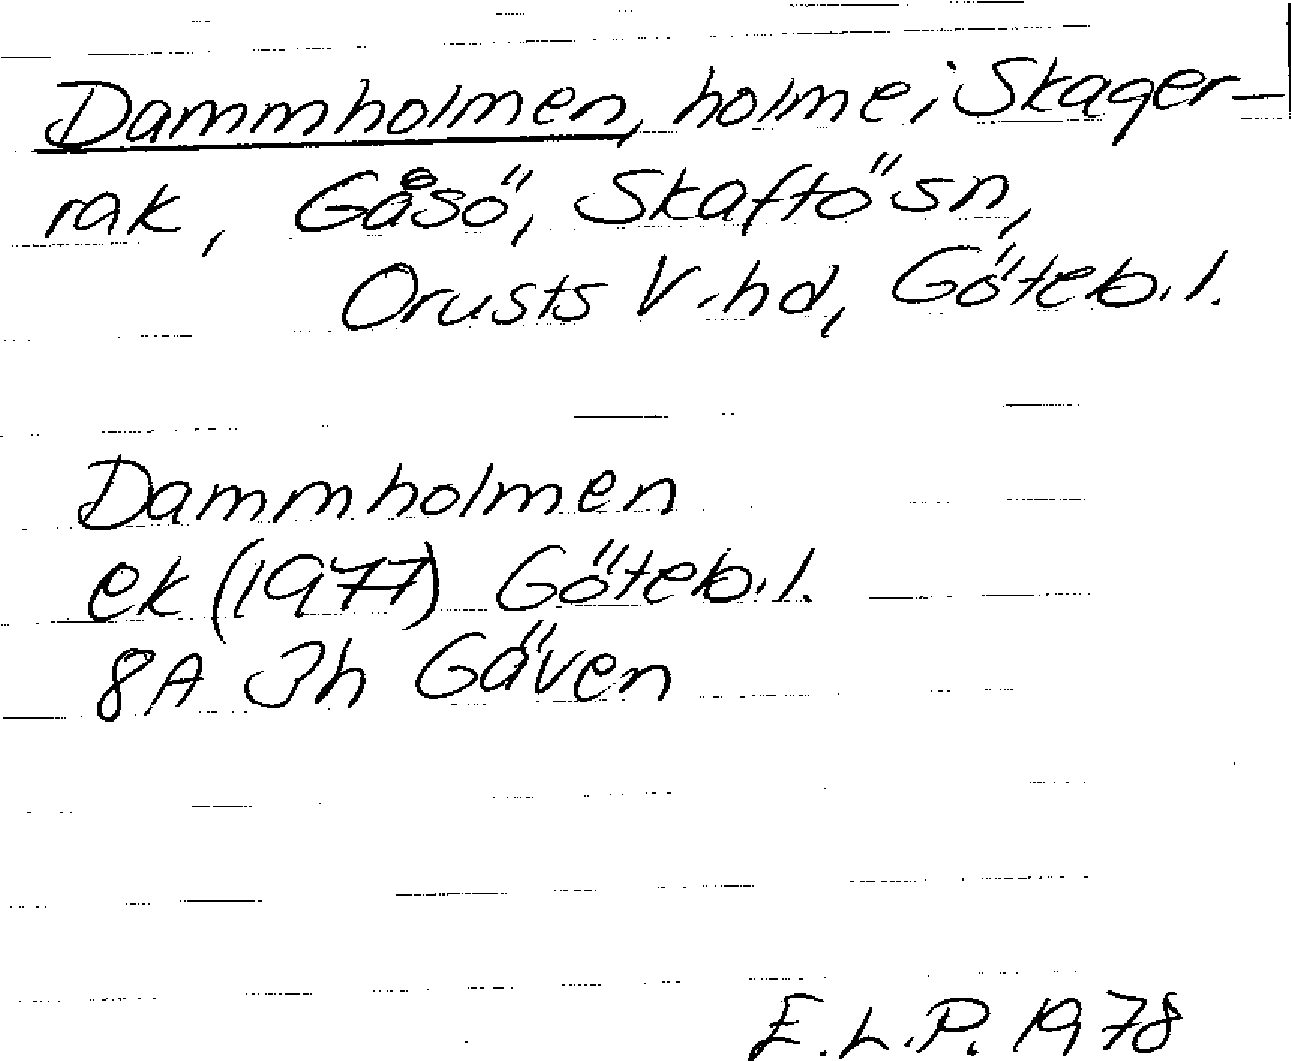 Dammholmen, holme i Skager-
rak, Gåsö, Skaftö sn,
Orusts V. hd, Göteb. l.
Dammholmen
ek (1977) Göteb. l.
8A 3h Gäven
E.L.P. 1978